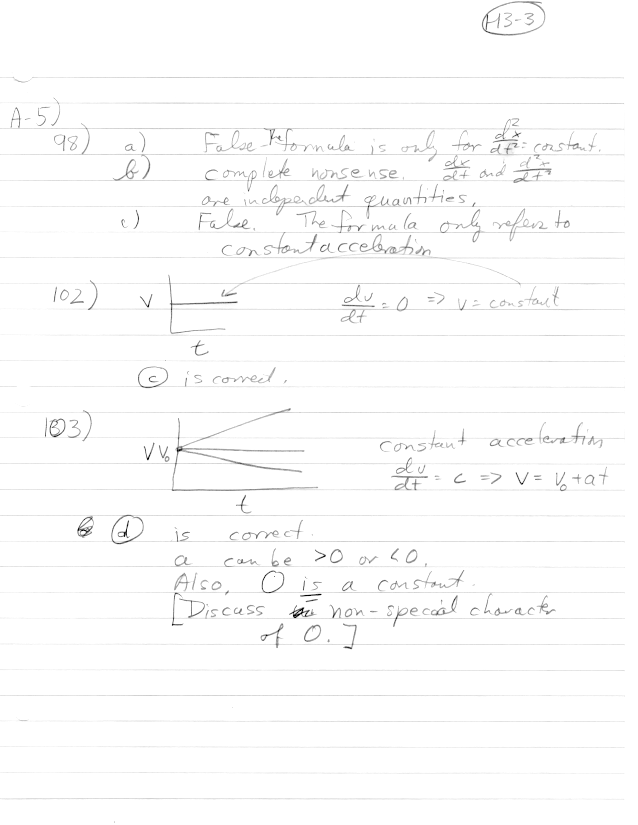 H3-3
A-5)
98) a) False The formula is only for d²x/dt² = constant.
b) complete nonsense. dx/dt and d²x/dt²
are independent quantities,
c) False. The formula only refers to
constant acceleration
102) V dv/dt = 0 => V = constant
t
(c) is correct.
103) constant acceleration
V V₀ dv/dt = c => V = V₀ + at
t
(d) is correct.
a can be >0 or <0.
Also, 0 is a constant.
[Discuss non-special character
of 0.]